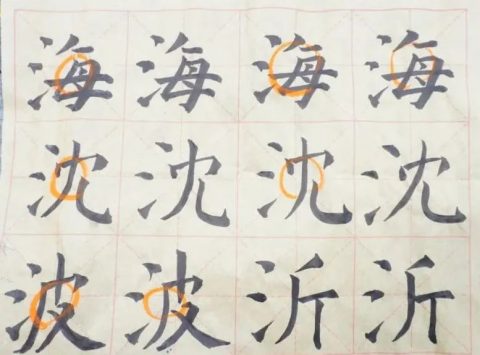 海海海海
沈沈沈沈
波波沂沂